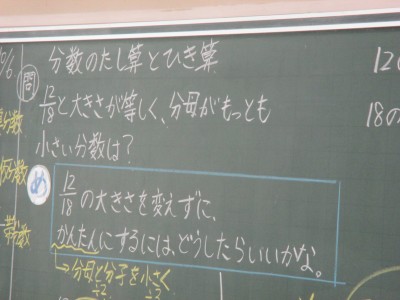 分数のたし算とひき算
問 12/18と大きさが等しく、分母がもっとも
小さい分数は?
め 12/18の大きさを変えずに、
かんたんにするには、どうしたらいいかな。
→分母と分子を小さく
÷2 ÷2
仮分数
帯分数
12の
18の